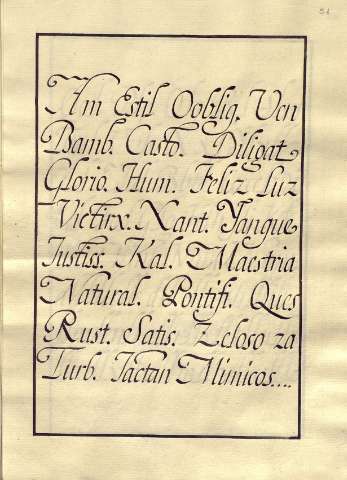 51
Am Estil Ooblig. Ven
Bamb. Casto. Diligat
Glorio. Hum. Feliz luz
Victirx. Xant. Yangue
Justiss. Kal. Maestria
Natural. Pontifi. Ques
Rust. Satis. Zeloso za
Turb. Jactan Mimicos....